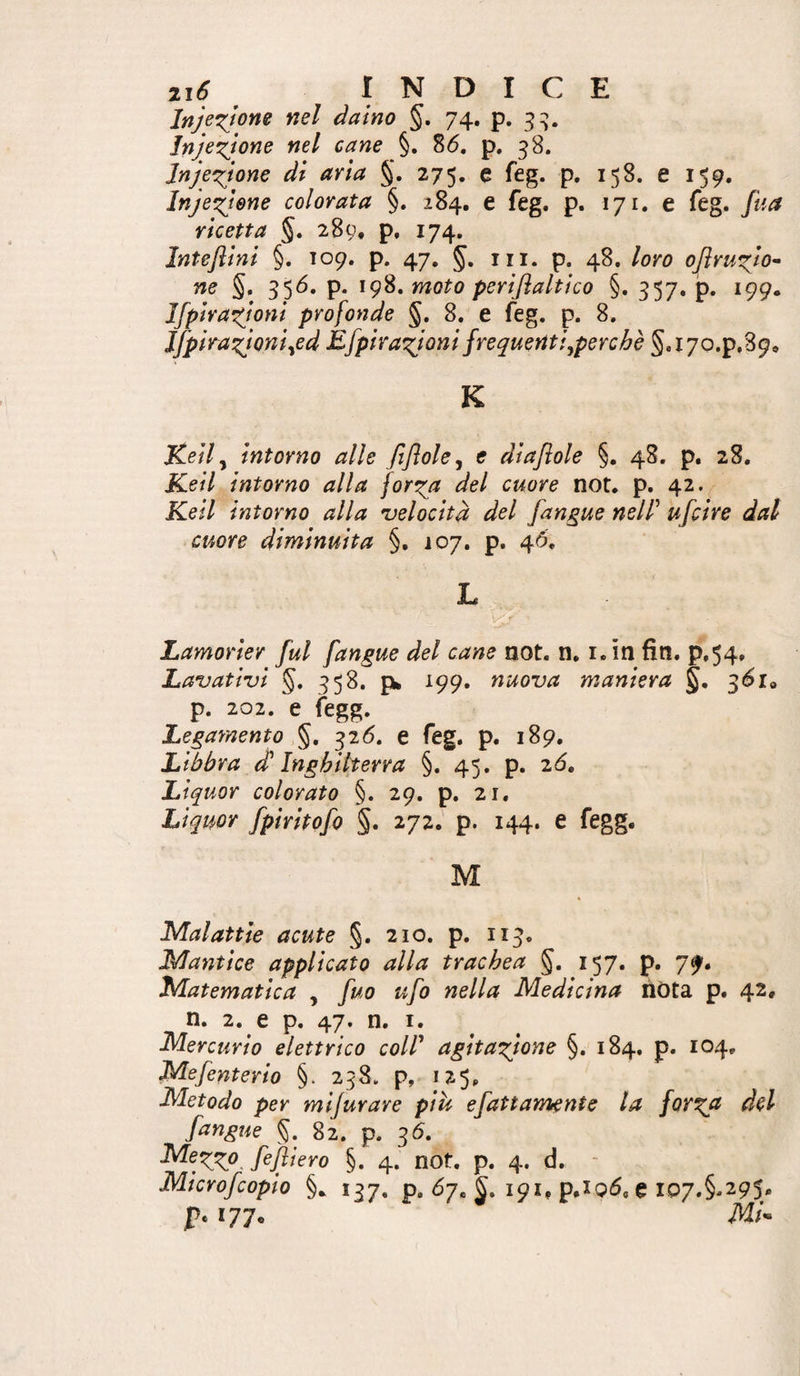 216 INDICE
Injezione nel daino §. 74. p. 33.
Injezione nel cane §. 86. p. 38.
Injezione di aria §. 275. e ſeg. p. 158. e 159.
Injezione colorata §. 284. e ſeg. p. 171. e ſeg. ſua
ricetta §. 289. p. 174.
Inteſtini §. 109. p. 47. §. 111. p. 48. loro oſtruzio-
ne §. 356. p. 198. moto periſtaltico §. 357. p. 199.
Iſpirazioni profonde §. 8. e ſeg. p. 8.
Iſpirazioni,ed Eſpirazioni frequenti,perchè §.170.p.89.
K
Keil, intorno alle ſiſtole, e diaſtole §. 48. p. 28.
Keil intorno alla forza del cuore not. p. 42.
Keil intorno alla velocità del ſangue nell' uſcire dal
cuore diminuita §. 107. p. 46.
L
Lamorier ſul ſangue del cane not. n. 1. in fin. p.54.
Lavativi §. 358. p. 199. nuova maniera §. 361.
p. 202. e ſegg.
Legamento §. 326. e ſeg. p. 189.
Libbra d' Inghilterra §. 45. p. 26.
Liquor colorato §. 29. p. 21.
Liquor ſpiritoſo §. 272. p. 144. e ſegg.
M
Malattie acute §. 210. p. 113.
Mantice applicato alla trachea §. 157. p. 79.
Matematica , ſuo uſo nella Medicina nota p. 42.
n. 2. e p. 47. n. 1.
Mercurio elettrico coll' agitazione §. 184. p. 104.
Meſenterio §. 238. p. 125.
Metodo per miſurare più eſattamente la forza del
ſangue §. 82. p. 36.
Mezzo ſeſtiero §. 4. not. p. 4. d.
Microſcopio §. 137. p. 67. §. 191. p.106. e 107.§.295.
p. 177. Mi-